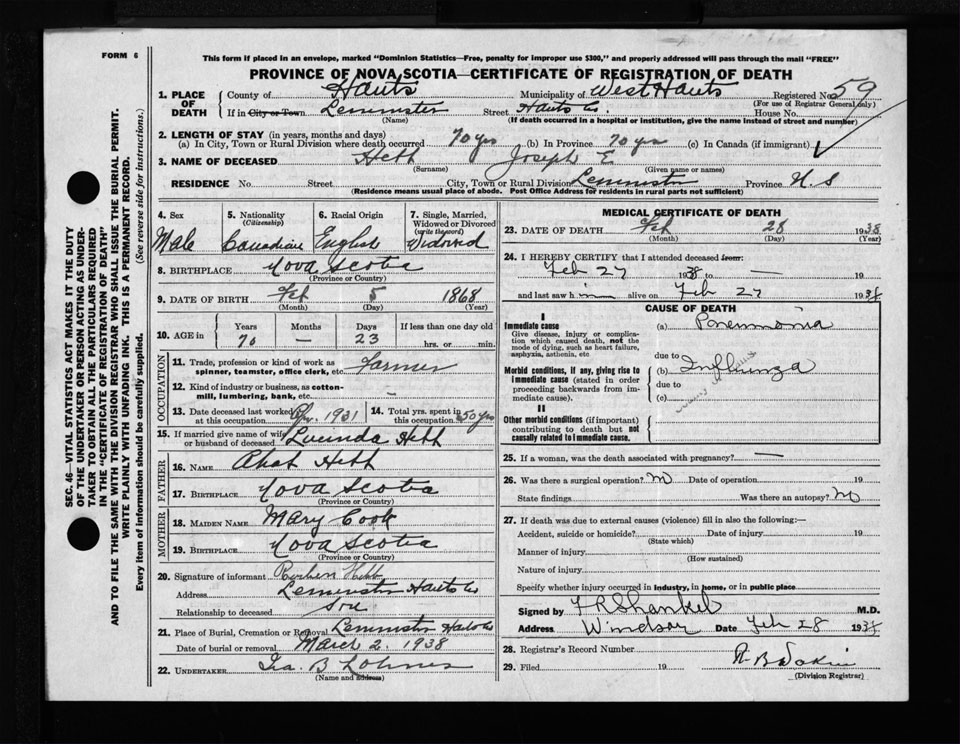 FORM 6
This form if placed in an envelope, marked "Dominion Statistics—Free, penalty for improper use $300," and properly addressed will pass through the mail "FREE"
PROVINCE OF NOVA SCOTIA—CERTIFICATE OF REGISTRATION OF DEATH
1. PLACE OF DEATH County of Hants Municipality of West Hants Registered No. 59
(For use of Registrar General only)
If in City or Town Leminster Street Hants Co. House No.
(Name) (If death occurred in a hospital or institution, give the name instead of street and number)
2. LENGTH OF STAY (in years, months and days)
(a) In City, Town or Rural Division where death occurred 70 yrs (b) In Province 70 yrs (c) In Canada (if immigrant)
3. NAME OF DECEASED Hebb Joseph E
(Surname) (Given name or names)
RESIDENCE No. Street City, Town or Rural Division Leminster Province N.S
(Residence means usual place of abode. Post Office Address for residents in rural parts not sufficient)
4. Sex Male
5. Nationality (Citizenship) Canadian
6. Racial Origin English
7. Single, Married, Widowed or Divorced (write the word) Widowed
8. BIRTHPLACE Nova Scotia
(Province or Country)
9. DATE OF BIRTH Feb 5 1868
(Month) (Day) (Year)
10. AGE in Years 70 Months — Days 23 If less than one day old hrs. or min.
OCCUPATION
11. Trade, profession or kind of work as spinner, teamster, office clerk, etc. Farmer
12. Kind of industry or business, as cotton-mill, lumbering, bank, etc. —
13. Date deceased last worked at this occupation 1931
14. Total yrs. spent in this occupation 50 yrs
15. If married give name of wife or husband of deceased Lucinda Hebb
FATHER
16. NAME Hebb
17. BIRTHPLACE Nova Scotia
(Province or Country)
MOTHER
18. MAIDEN NAME Mary Cook
19. BIRTHPLACE Nova Scotia
(Province or Country)
20. Signature of informant Reuben Hebb
Address Leminster Hants Co
Relationship to deceased Son
21. Place of Burial, Cremation or Removal Leminster Hants Co
Date of burial or removal March 2. 1938
22. UNDERTAKER Ira. B Lohnes
(Name and address)
MEDICAL CERTIFICATE OF DEATH
23. DATE OF DEATH Feb 28 1938
(Month) (Day) (Year)
24. I HEREBY CERTIFY that I attended deceased from:
Feb 27 1938 to — 19
and last saw him alive on Feb 27 1938
CAUSE OF DEATH
I
Immediate cause
Give disease, injury or complication which caused death, not the mode of dying, such as heart failure, asphyxia, asthenia, etc
(a) Pneumonia
due to
Morbid conditions, if any, giving rise to immediate cause (stated in order proceeding backwards from immediate cause).
(b) Influenza
due to
(c)
II
Other morbid conditions (if important) contributing to death but not causally related to immediate cause.
25. If a woman, was the death associated with pregnancy? —
26. Was there a surgical operation? No Date of operation 19
State findings Was there an autopsy? No
27. If death was due to external causes (violence) fill in also the following:—
Accident, suicide or homicide? Date of injury 19
(State which)
Manner of injury
(How sustained)
Nature of injury
Specify whether injury occurred in industry, in home, or in public place
Signed by F R Shankel M.D.
Address Windsor Date Feb 28 1938
28. Registrar's Record Number
29. Filed 19
(Division Registrar)
SEC. 46—VITAL STATISTICS ACT MAKES IT THE DUTY
OF THE UNDERTAKER OR PERSON ACTING AS UNDER-
TAKER TO OBTAIN ALL THE PARTICULARS REQUIRED
IN THE "CERTIFICATE OF REGISTRATION OF DEATH"
AND TO FILE THE SAME WITH THE DIVISION REGISTRAR WHO SHALL ISSUE THE BURIAL PERMIT.
WRITE PLAINLY WITH UNFADING INK. THIS IS A PERMANENT RECORD.
Every item of information should be carefully supplied. (See reverse side for instructions.)